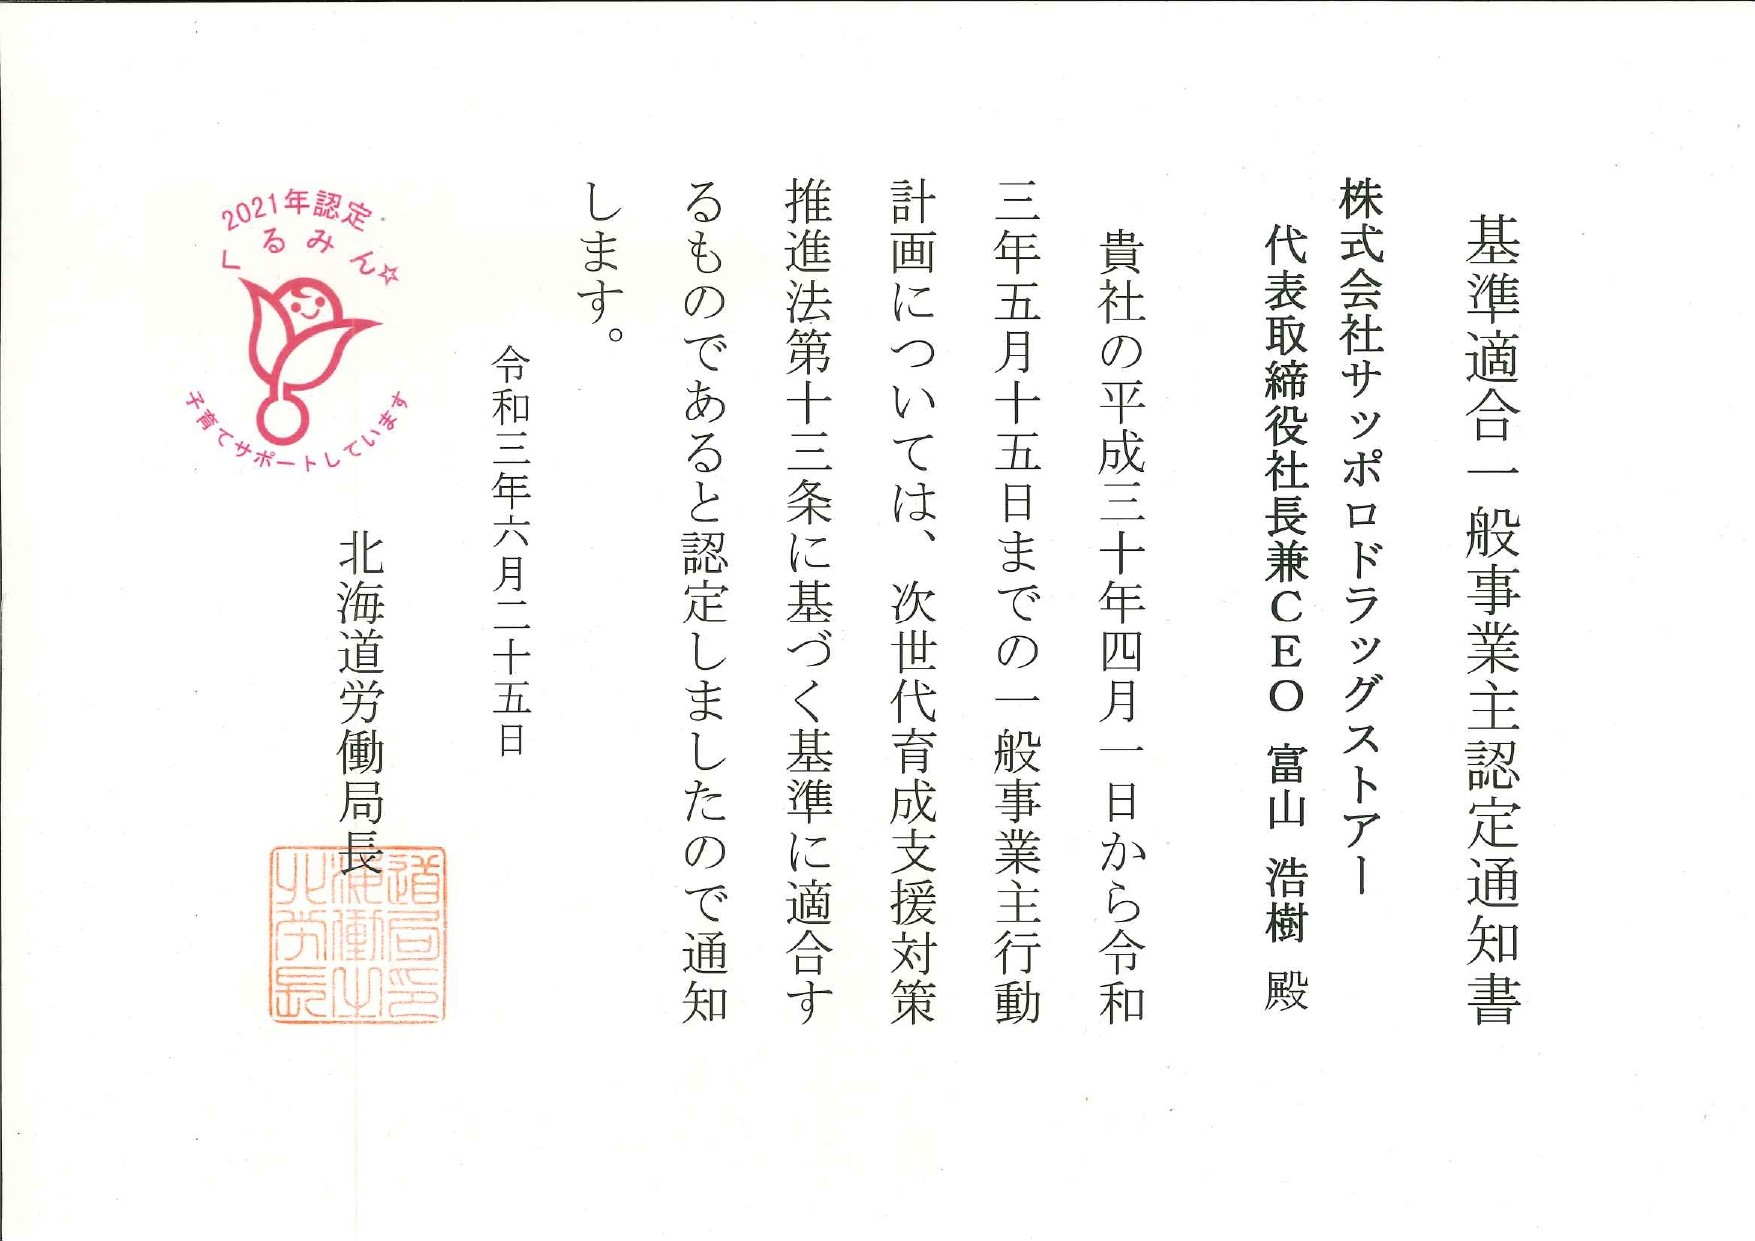 基準適合一般事業主認定通知書
株式会社サッポロドラッグストアー
代表取締役社長兼CEO 富山 浩樹 殿
貴社の平成三十年四月一日から令和
三年五月十五日までの一般事業主行動
計画については、次世代育成支援対策
推進法第十三条に基づく基準に適合す
るものであると認定しましたので通知
します。
令和三年六月二十五日
北海道労働局長
2021年認定
くるみん☆
子育てサポートしています
北海道
労働局
長之印